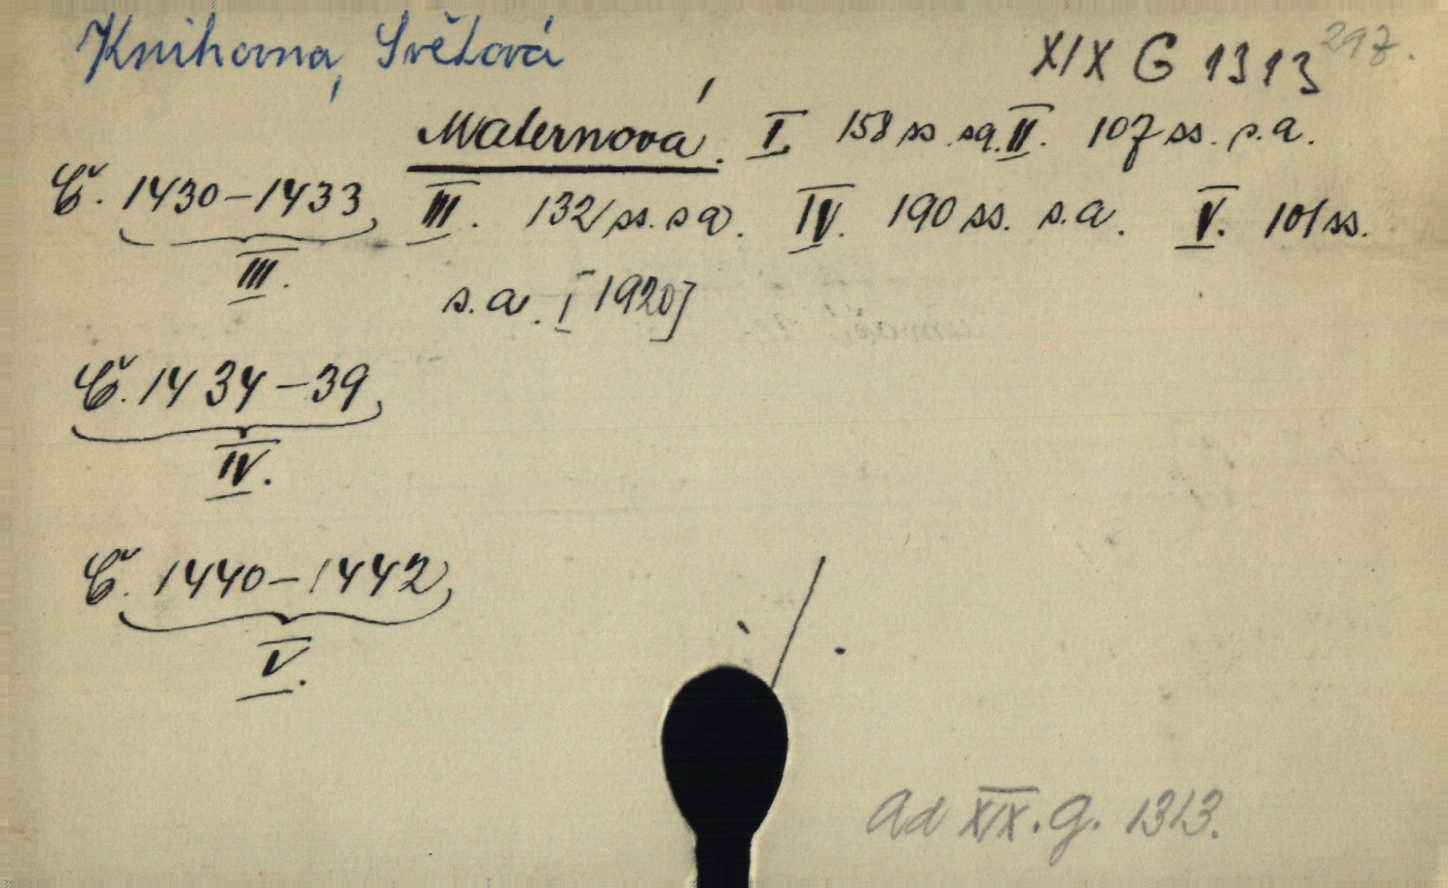 Knihovna, Světová
XIX G 1313 297.
Maternová. I. 158 ss. s.a. II. 107 ss. s.a.
Č. 1430–1433, III. 132 ss. s.a. IV. 190 ss. s.a. V. 101 ss.
III.
s.a. [1920]
Č. 1434–39,
IV.
Č. 1440–1442,
V.
ad XIX. G. 1313.